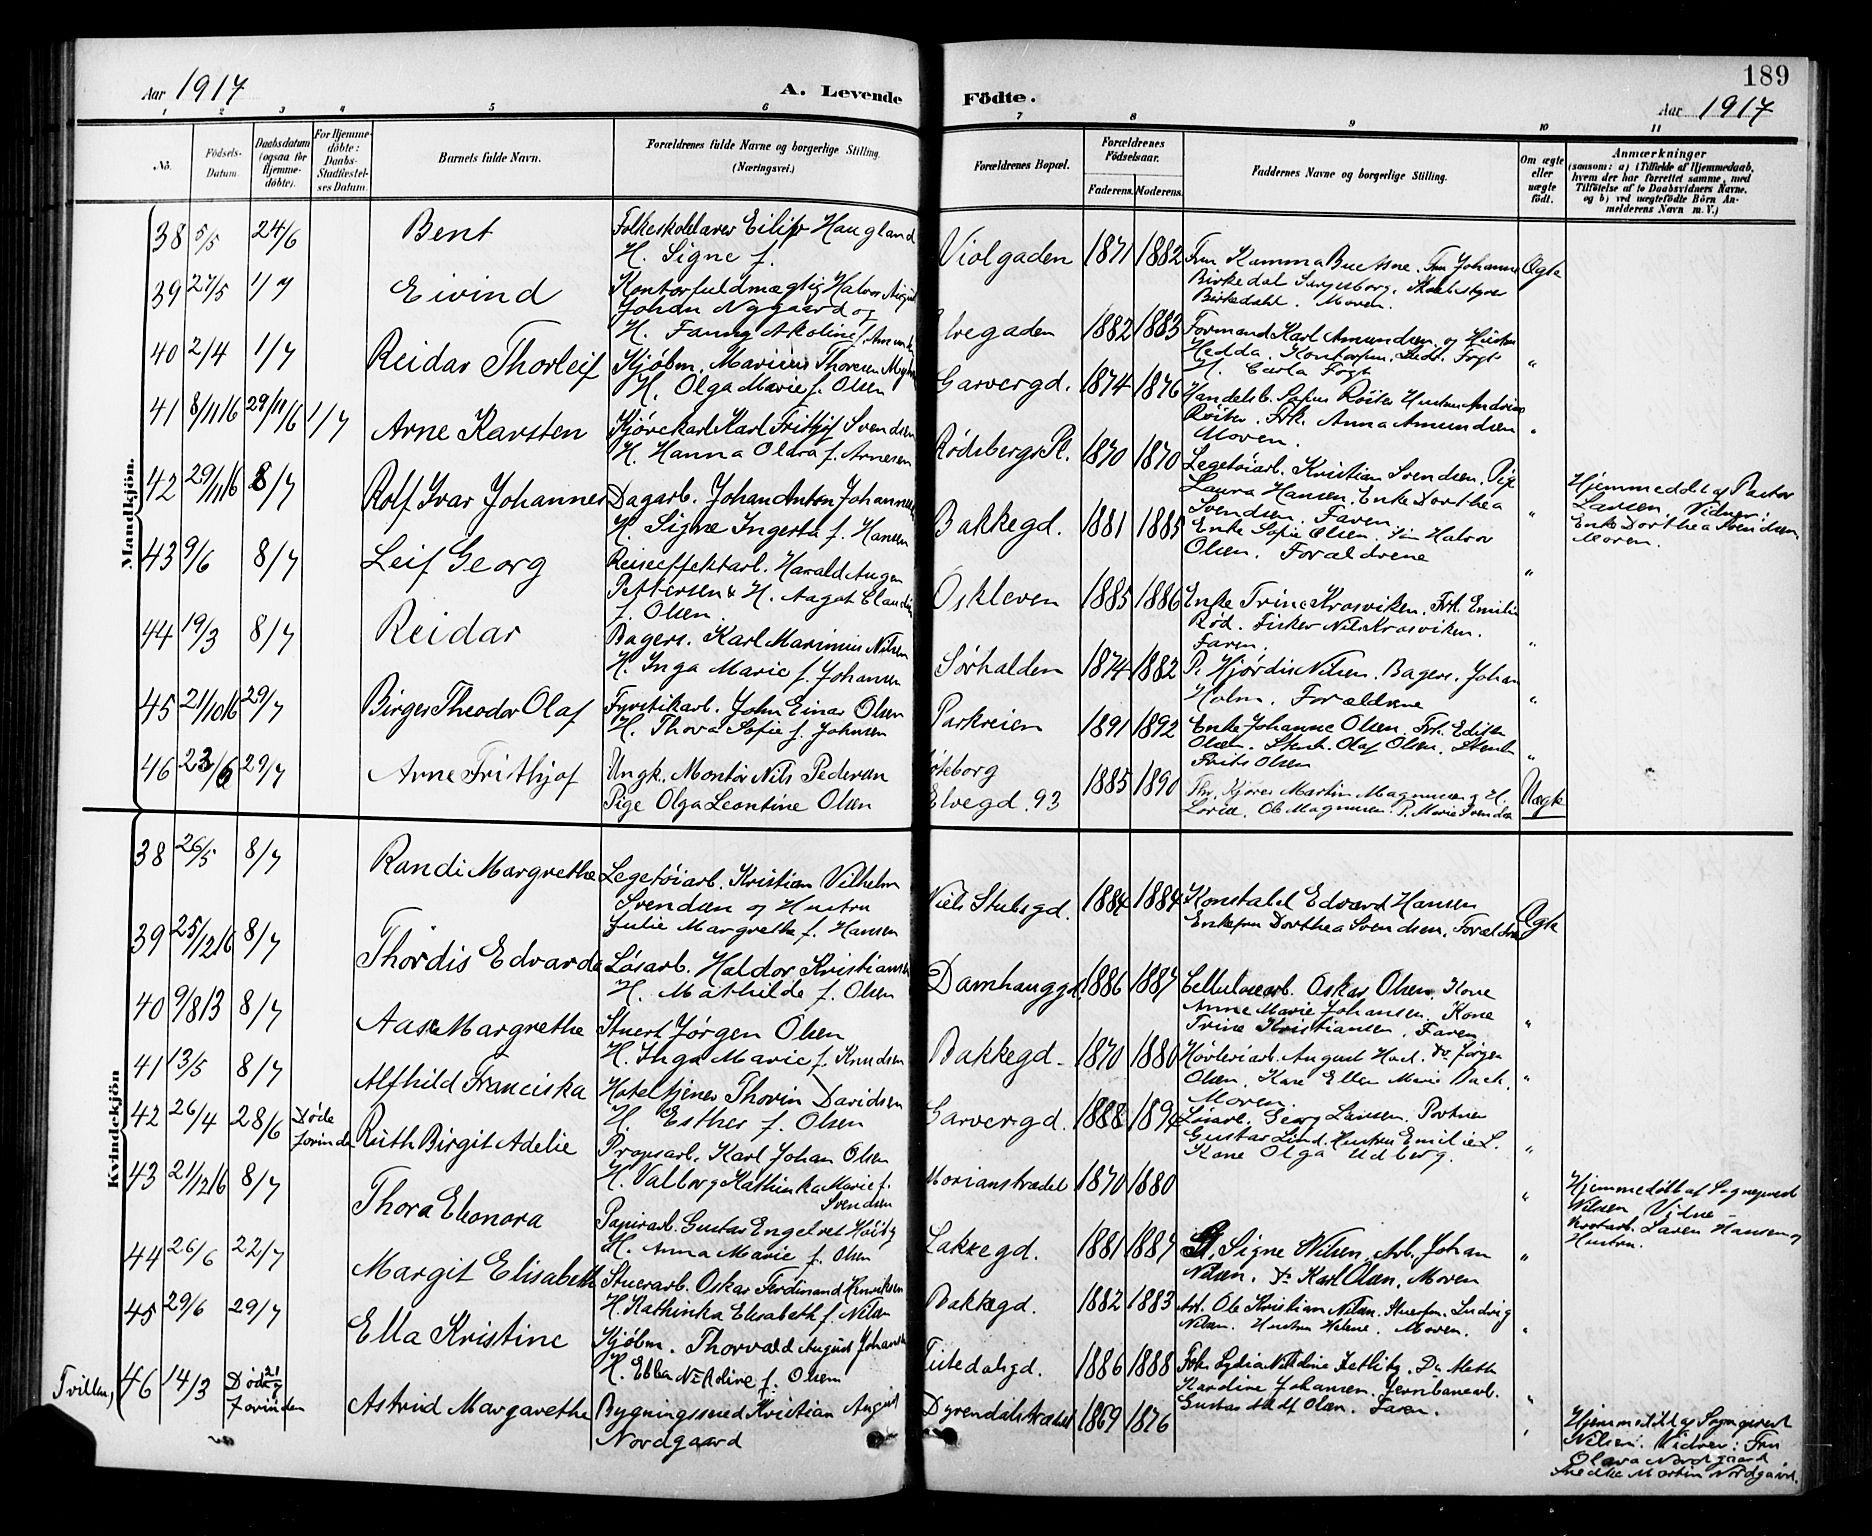 189
Aar 1917 A. Levende Födte. Aar 1917
1 2 3 4 5 6 7 8 9 10 11
No. Födsels-Datum. Daabsdatum (ogsaa för Hjemme-döbte). For Hjemme-döbte: Daabs-Stadfæstel-ses Datum. Barnets fulde Navn. Forældrenes fulde Navne og borgerlige Stilling. (Næringsvei.) Forældrenes Bopæl. Forældrenes Födselsaar. Faderens. Moderens. Faddernes Navne og borgerlige Stilling. Om ægte eller uægte født. Anmærkninger
(saasom: a) i Tilfælde af Hjemmedaab, hvem der har forrettet samme, med Tilföielse af to Daabsvidners Navne, og b) ved uægtefödte Börn An-melderens Navn m. V.)
Mandkjön.
38 5/5 24/6 Bent Folkeskolelærer Eilif Haugland
H. Signe f. Violgaden 1871 1882 Ægte
39 27/5 1/7 Eivind
Johan Nygaard og
H. Fanny Akoline f. Elvegaden 1882 1883 Formand Karl Amundsen og Hustru
Hedda. Fogt
H. Carla Fogt "
40 2/4 1/7 Reidar Thorleif Kjøbm. Marius Thoresen
H. Olga Marie f. Olsen Garvergd. 1874 1876
Frk. Anna Amundsen
Moren. "
41 8/11 16 29/11 16 1/7 Arne Karsten Kjørekarl Karl Frithjof Svendsen
H. Hanna f. Arnesen Rødsbergs Pl. 1870 1870 Legetøiarb. Kristian Svendsen. Pige
Laura Hansen. Enke Dorthea
Svendsen. Faren " Hjemmedøbt af Pastor
Larsen. Vidner:
Enke Dorthea Svendsen,
Moren.
42 29/11 16 8/7 Rolf Ivar Johannes Dagarb. Johan Anton Johannesen
H. Signe f. Hansen Bakkegd. 1881 1885 Enke Sofie Olsen. Halvor
Olsen. Forældrene "
43 9/6 8/7 Leif Georg Reiseeffektarb. Harald
Pettersen & H. Aagot
f. Olsen. Oskleven 1885 1886 Enke Trine Krosviken. Frk. Emilie
Rød. Fisker Nils Krosviken.
Faren. "
44 19/3 8/7 Reidar Bagers. Karl Marinius Nilsen
H. Inga Marie f. Johansen Sørhalden 1874 1882 P. Hjørdis Nilsen. Bagers. Johan
Holm. Forældrene "
45 21/10 16 29/7 Birger Theodor Olaf Fyrstikarb. John Einar Olsen
H. Thora Sofie f. Johnsen Parkveien 1891 1892 Enke Johanne Olsen. Frk.
Olsen. Olaf Olsen.
Frits Olsen "
46 23/6 29/7 Arne Frithjof Ungk. Montør Nils Pedersen
Pige Olga Leontine Olsen Göteborg
Elvegd. 93 1885 1890 Martin Magnusen og H.
Ole Magnusen. P. Marie Svendsen Uægte
Kvindekjön
38 26/5 8/7 Randi Margrethe Legetøiarb. Kristian Vilhelm
Svendsen og Hustru
Julie Margrethe f. Hansen Niels Stubsgd. 1884 1884 Konstabel Edvard Hansen
Enkefru Dorthea Svendsen. Forældrene Ægte
39 25/12 16 8/7 Thordis Edvarda Løsarb. Haldor Kristiansen
H. Mathilde f. Olsen Damhauggd. 1886 1887 Cellulosearb. Oskar Olsen. Kone
Anne Marie Johansen. Kone
Trine Kristiansen. Faren "
40 9/8 13 8/7 Aase Margrethe Stuert Jørgen Olsen
H. Inga Marie f. Knudsen Bakkegd. 1870 1880 Høvleriarb. August Do Jørgen
Olsen. Kone Ellen Marie
Moren. "
41 13/5 8/7 Alfhild Franciska Hoteltjener Thorin Davidsen
H. Esther f. Olsen Garvergd. 1888 1894 Løsarb. Georg Larsen. Portner
Gustav Lind. Hustru Emilie L.
Kone Olga Udberg. "
42 26/4 28/6 Døde forinden Ruth Birgit Adelie Propsarb. Karl Johan Olsen
H. Valborg Kathinka Marie f.
Svendsen Morianstrædet 1870 1880 " Hjemmedøbt af Sogneprest
Nilsen. Vidne
Hansen og
Hustru.
43 21/12 16 8/7 Thora Eleonora Papirarb. Gustav Engelret Høiby
H. Anna Marie f. Olsen Lakkegd. 1881 1887 P. Signe Nilsen. Arb. Johan
Nilsen. Do Karl Olsen. Moren "
44 26/6 22/7 Margit Elisabeth Stuerarb. Oskar Ferdinand Henriksen
H. Kathinka Elisabeth f. Nilsen Bakkegd. 1882 1883 Arb. Ole Kristian Nilsen. Ludvig
Nilsen. Hustru Helene. Moren. "
45 29/6 29/7 Ella Kristine Kjøbm. Thorvald August Johansen
H. Ebba Nikoline f. Olsen Tistedalsgd. 1886 1888 Frk. Lydia Nikoline
Kardine Johansen. Jernbanearb.
Gustav Adolf Olsen. Faren. "
Tvilling 46 14/3 Døde forinden Astrid Margarethe Bygningssned Kristian August
Nordgaard Dyrendalstrædet 1869 1876 " Hjemmedøbt af Sogneprest
Nilsen. Vidner: Fru
Olava Nordgaard
Snedker Martin Nordgaard.